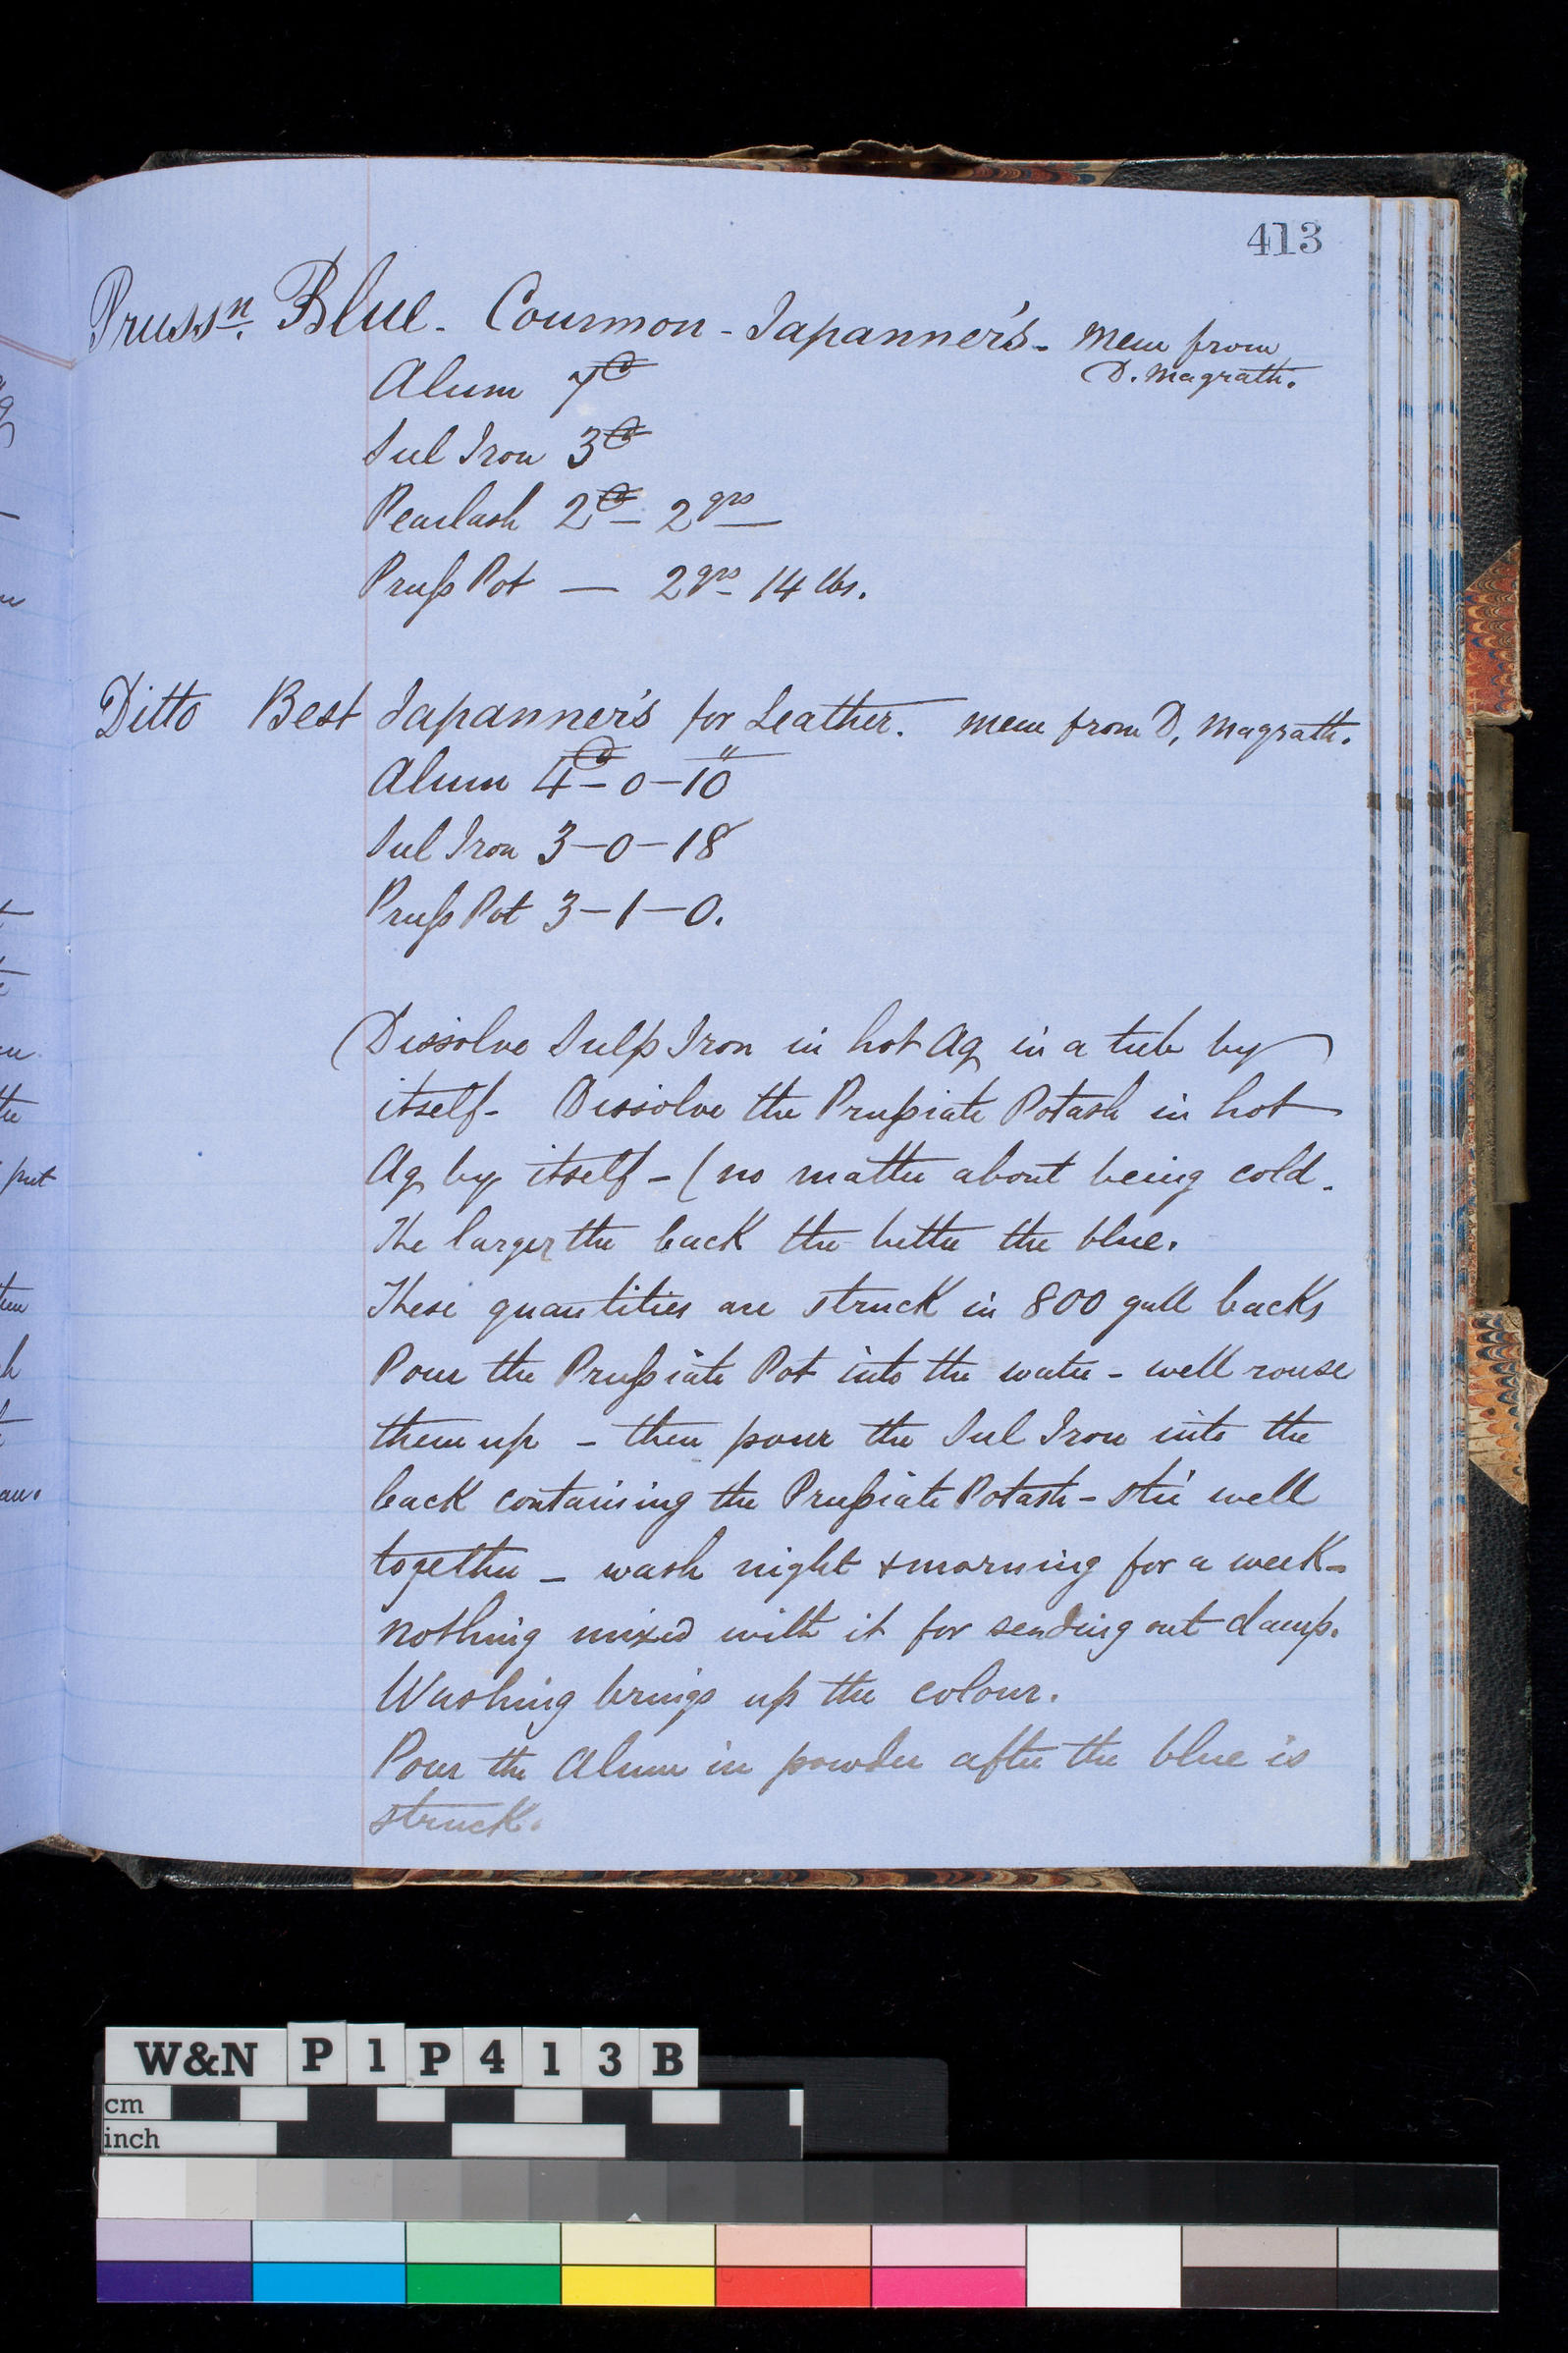 413
Prussn. Blue - Common - Japanner's - Mem from
D. Magrath.
Alum 7C
Sul Iron 3C
Pearlash 2C - 2 qrs
Pruss Pot — 2 qrs 14 lbs.
Ditto Best Japanner's for Leather. Mem from D, Magrath.
Alum 4C - 0 - 10"
Sul Iron 3 - 0 - 18
Pruss Pot 3 - 1 - 0.
(Dissolve Sulp Iron in hot Aq in a tub by
itself - Dissolve the Prussiate Potash in hot
Aq by itself - (no matter about being cold.
The larger the back the better the blue.
These quantities are struck in 800 gall backs
Pour the Prussiate Pot into the water - well rouse
them up - then pour the Sul Iron into the
back containing the Prussiate Potash - stir well
together - wash night & morning for a week -
nothing mixed with it for sending out damp.
Washing brings up the colour.
Pour the Alum in powder after the blue is
struck.
put
W&N P1P413B
cm
inch